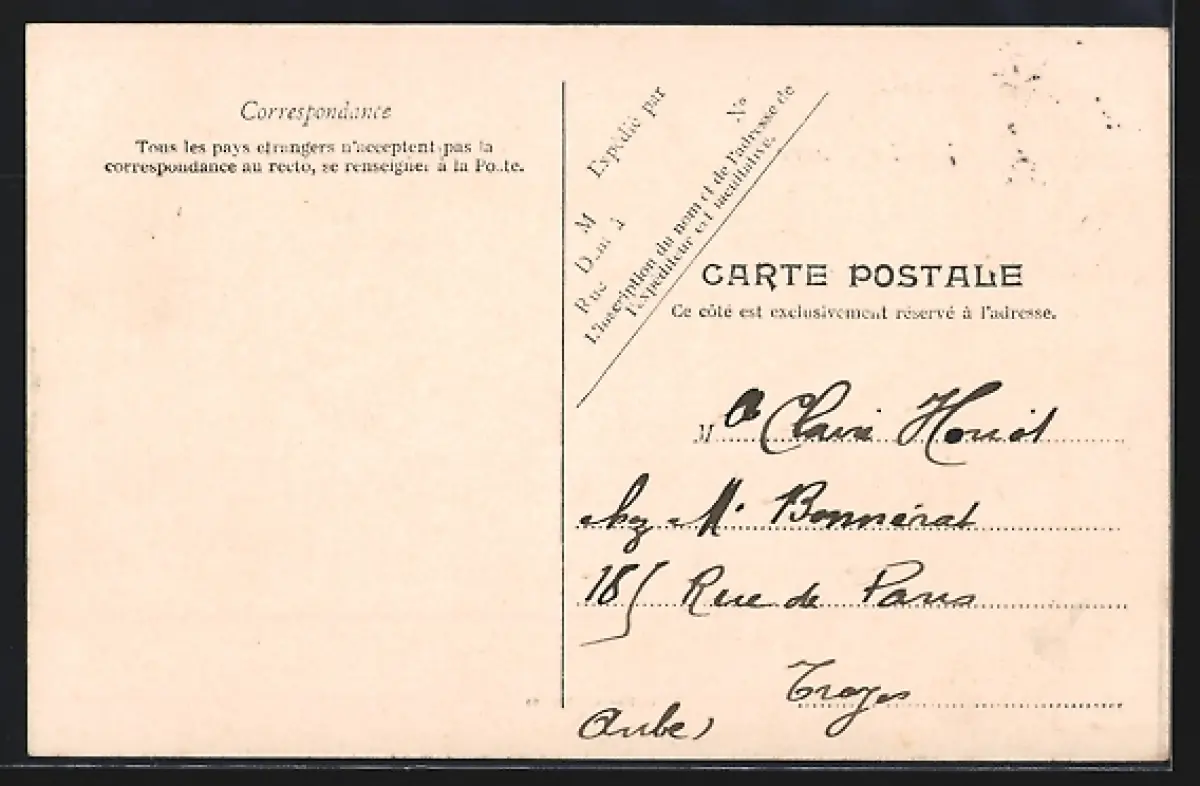 Correspondance
Tous les pays étrangers n'acceptent pas la
correspondance au recto, se renseigner à la Poste.
Expédié par
M
Rue N°
L'inscription du nom et de l'adresse de
l'expéditeur est facultative.
CARTE POSTALE
Ce côté est exclusivement réservé à l'adresse.
M Claire
chez M. Bonnérat
18 Rue de Paris
Troyes
Aube)